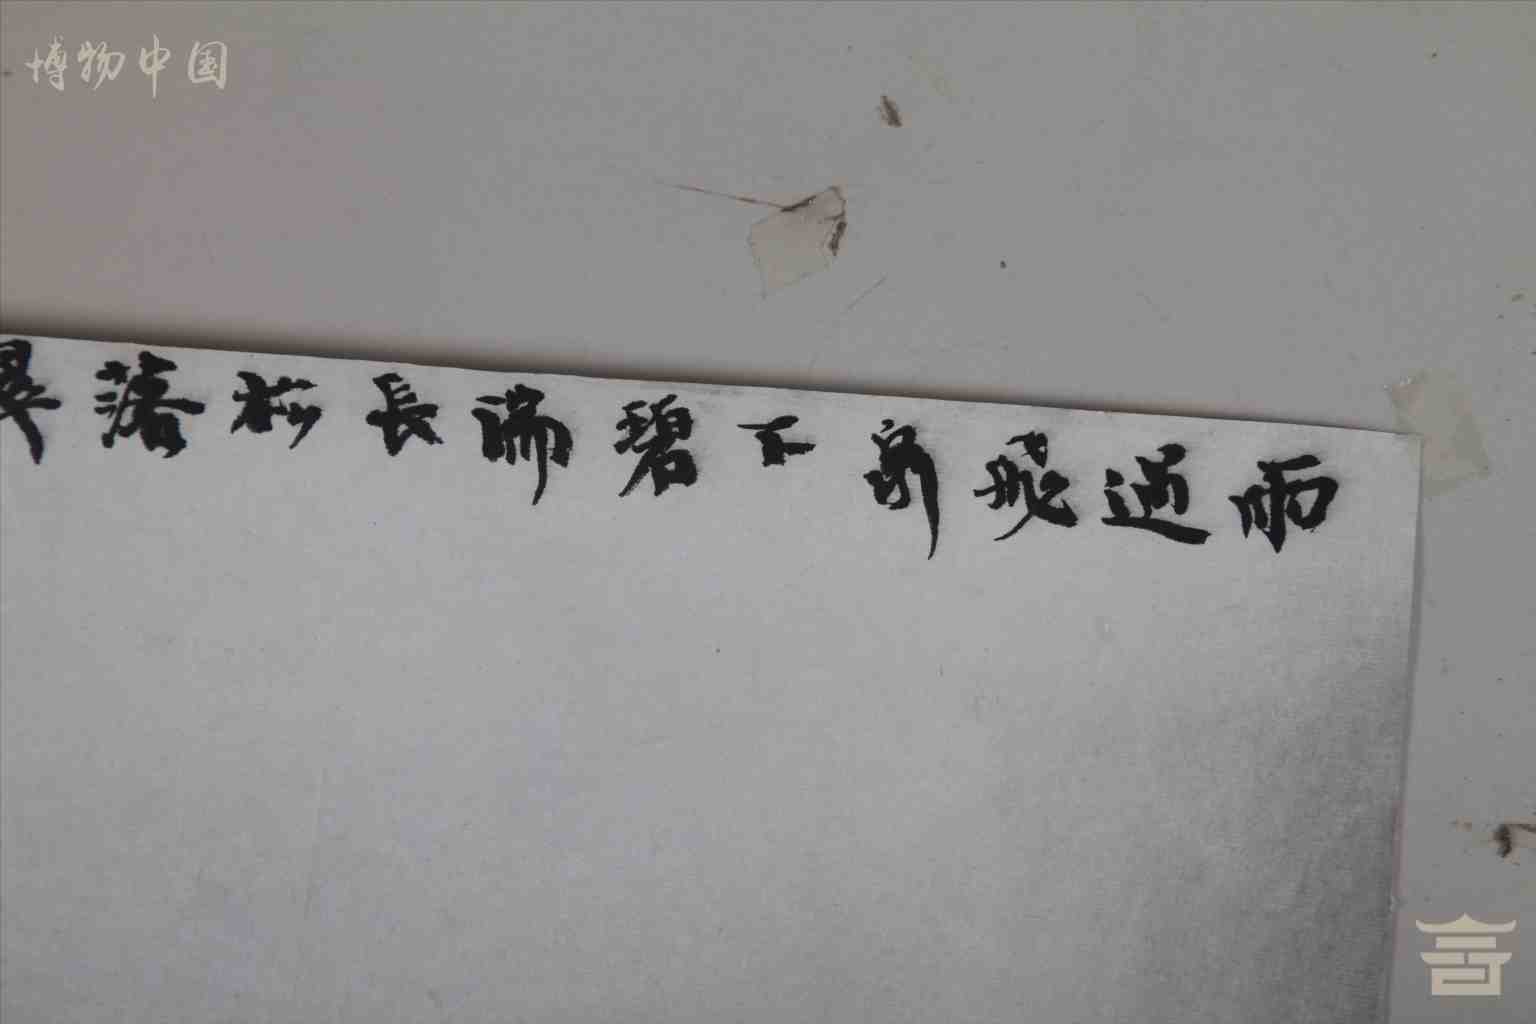 博物中国
雨過飛泉下碧湍長松落翠